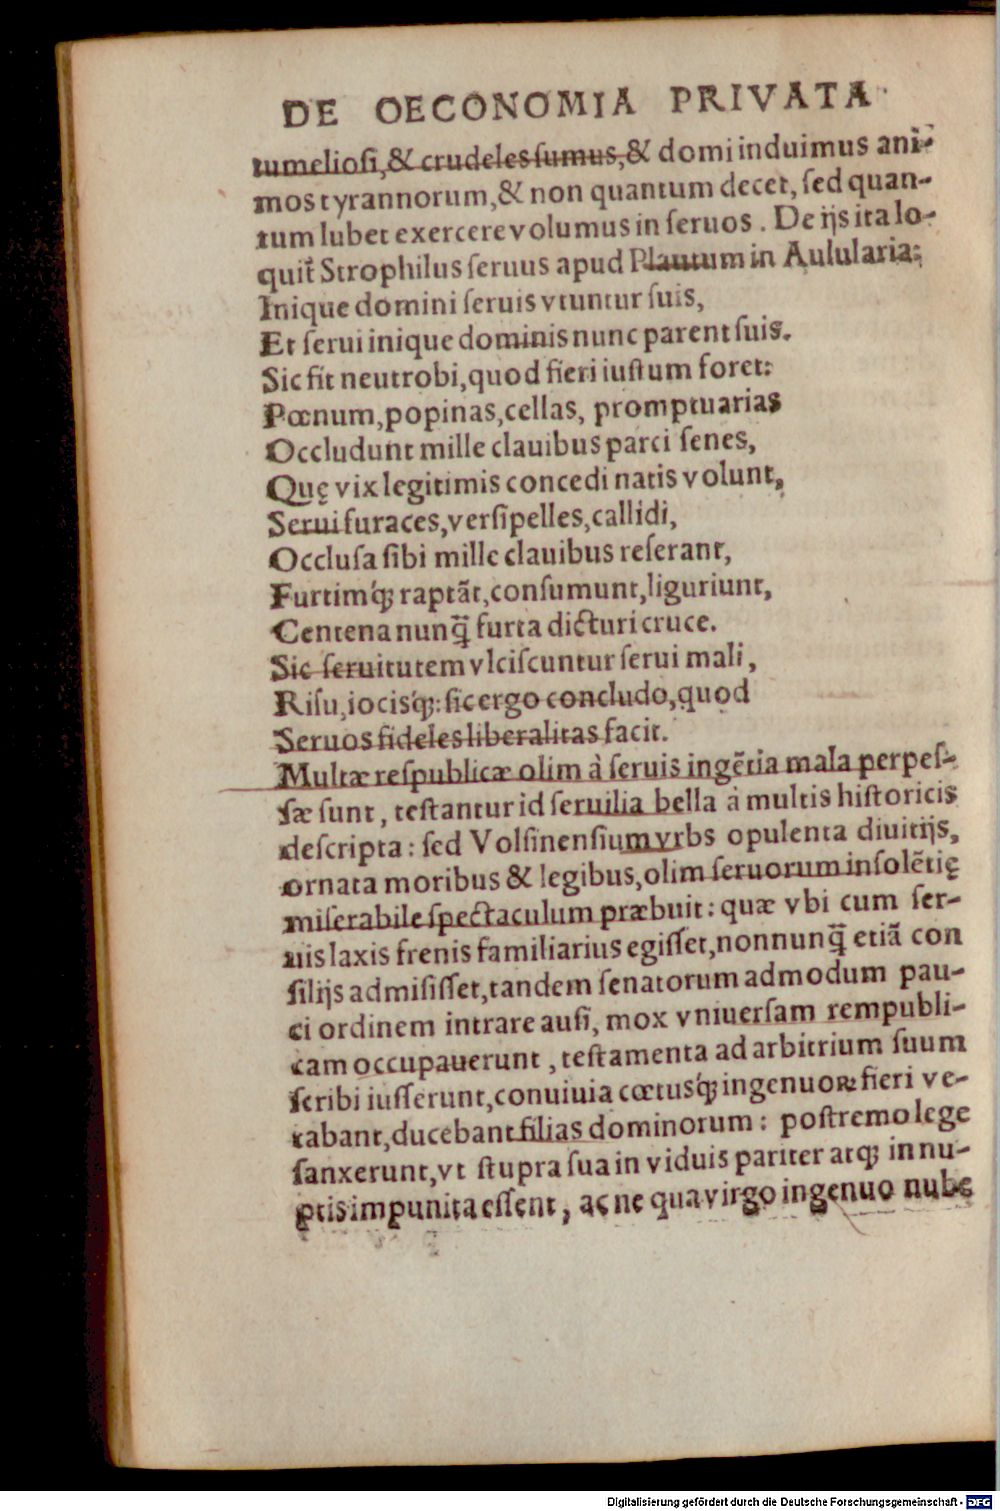 DE OECONOMIA PRIVATA
tumeliosi,& crudeles sumus,& domi induimus ani-
mos tyrannorum,& non quantum decet, sed quan-
tum lubet exercere volumus in seruos . De ijs ita lo-
quit̃ Strophilus seruus apud Plautum in Aulularia:
Inique domini seruis vtuntur suis,
Et serui inique dominis nunc parent suis.
Sic fit neutrobi,quod fieri iustum foret:
Pœnum,popinas,cellas, promptuarias
Occludunt mille clauibus parci senes,
Quę vix legitimis concedi natis volunt,
Serui furaces,versipelles,callidi,
Occlusa sibi mille clauibus reserant,
Furtimq́; raptãt,consumunt,liguriunt,
Centena nunq̃ furta dicturi cruce.
Sic seruitutem vlciscuntur serui mali,
Risu,iocisq́;: sic ergo concludo,quod
Seruos fideles liberalitas facit.
Multæ respublicæ olim à seruis ingẽtia mala perpes-
sæ sunt, testantur id seruilia bella à multis historicis
descripta: sed Volsinensium vrbs opulenta diuitijs,
ornata moribus & legibus,olim seruorum insolẽtię
miserabile spectaculum præbuit: quæ vbi cum ser-
uis laxis frenis familiarius egisset,nonnunq̃ etiã con
silijs admisisset,tandem senatorum admodum pau-
ci ordinem intrare ausi, mox vniuersam rempubli-
cam occupauerunt, testamenta ad arbitrium suum
scribi iusserunt,conuiuia cœtusq́; ingenuoꝝ fieri ve-
tabant,ducebant filias dominorum: postremo lege
sanxerunt,vt stupra sua in viduis pariter atq; in nu-
ptis impunita essent, ac ne qua virgo ingenuo nube
Digitalisierung gefördert durch die Deutsche Forschungsgemeinschaft - DFG